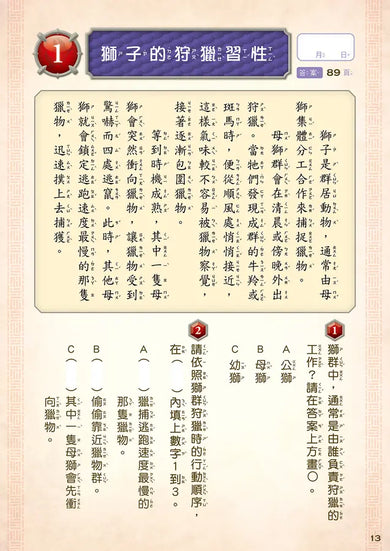 1
獅子的狩獵習性
月 日
答案 89 頁
獅子是群居動物，通常由母
獅集體分工合作來捕捉獵物。
母獅群會在清晨或傍晚外出
狩獵。當牠們發現成群的牛羚或
斑馬時，便從順風處悄悄接近，
這樣氣味較不容易被獵物察覺，
接著逐漸包圍獵物。
等到時機成熟，其中一隻母
獅會突然衝向獵物，讓獵物受到
驚嚇而四處逃竄。此時，其他母
獅就會鎖定逃跑速度最慢的那隻
獵物，迅速撲上去捕獲。
1
獅群中，通常是由誰負責狩獵的
工作？請在答案上方畫○。
A 公獅
B 母獅
C 幼獅
2
請依照獅群狩獵時的行動順序，
在（ ）內填上數字1到3。
A（ ）獵捕逃跑速度最慢的
那隻獵物。
B（ ）偷偷靠近獵物群。
C（ ）其中一隻母獅會先衝
向獵物。
13